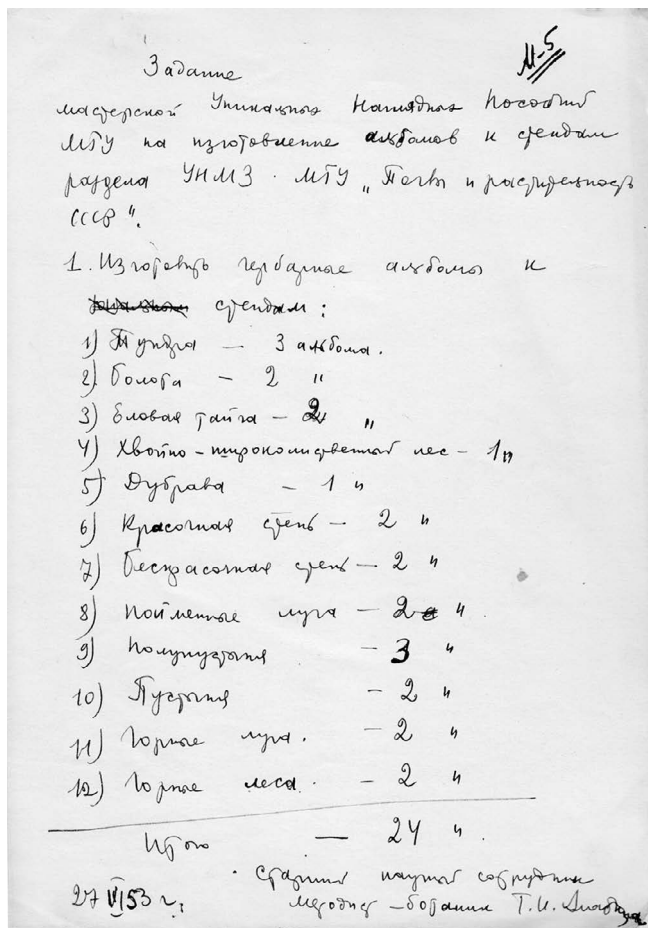 М-5
Задание
мастерской Уникальных Наглядных Пособий
МГУ на изготовление альбомов к стендам
раздела УНМЗ. МГУ „Почвы и растительность
СССР".
1. Изготовить гербарные альбомы к
стендам:
1) Тундра — 3 альбома.
2) Болота — 2 "
3) Еловая тайга — 2 "
4) Хвойно-широколиственный лес — 1 "
5) Дубрава — 1 "
6) Красочная степь — 2 "
7) Бескрасочная степь — 2 "
8) Пойменные луга — 2 "
9) Полупустыня — 3 "
10) Пустыня — 2 "
11) Горные луга. — 2 "
12) Горные леса. — 2 "
Итого — 24 ".
старший научный сотрудник
27 VI 53 г. методист-ботаник Т.И.